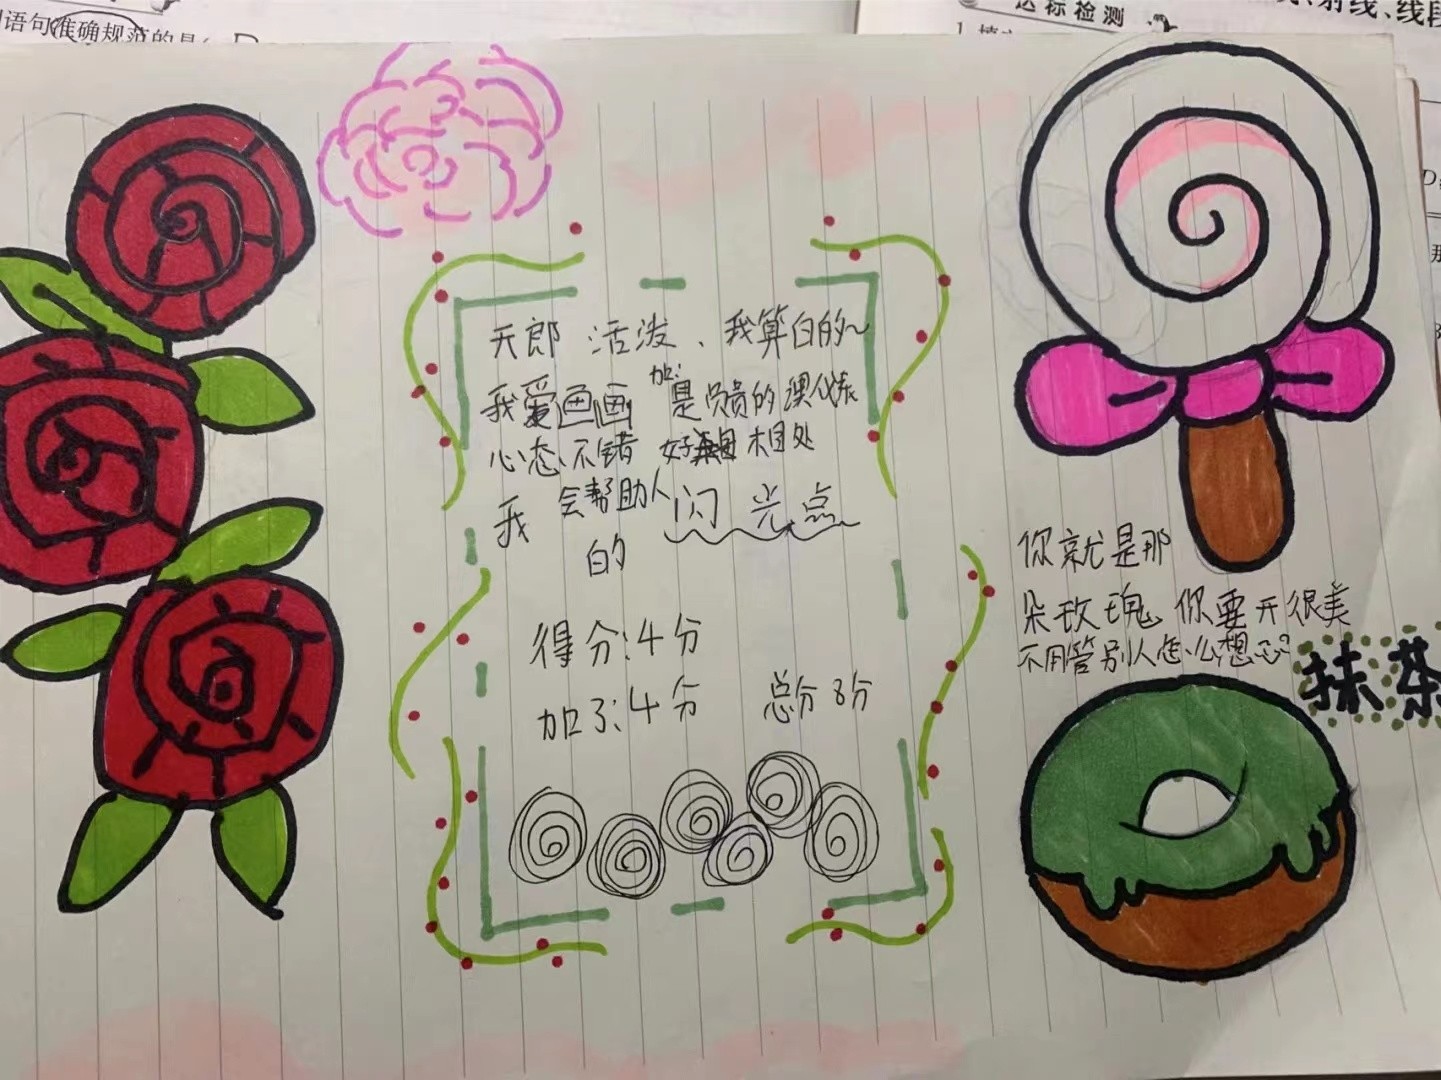 语句准确规范的是
达标检测
射线、线段
天郎 活泼、我算白的~
我爱画画 加:是员贵的
心态不错 好 相处
我 会帮助人 闪光点
的
得分:4分
加了:4分 总分8分
你就是那
朵玫瑰 你要开很美
不用管别人怎么想
抹茶